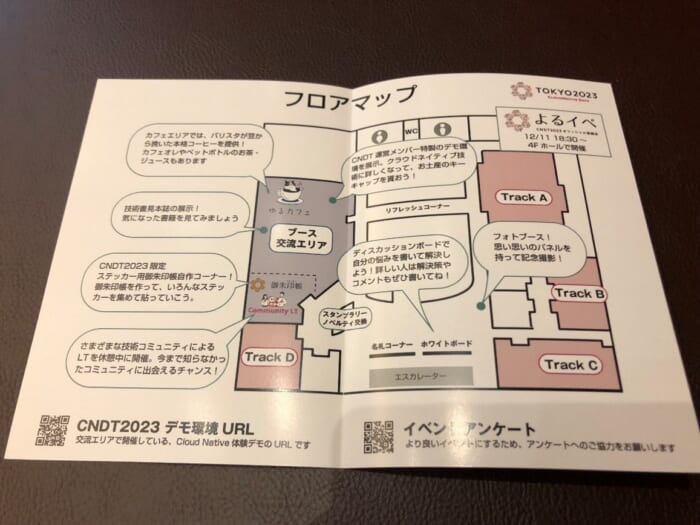 フロアマップ
TOKYO2023
よるイベ
CNDT2023 オフィシャル懇親会
12/11 18:30～
4F ホールで開催
カフェエリアでは、バリスタが豆か
ら挽いた本格コーヒーを提供！
カフェオレやペットボトルのお茶・
ジュースもあります
WC
CNDT 運営メンバー特製のデモ環
境を展示。クラウドネイティブ技
術に詳しくなって、お土産のキー
キャップを貰おう！
ゆるカフェ
Track A
リフレッシュコーナー
技術書見本誌の展示！
気になった書籍を見てみましょう
ブース
交流エリア
ディスカッションボードで
自分の悩みを書いて解決し
よう！詳しい人は解決策や
コメントもぜひ書いてね！
フォトブース！
思い思いのパネルを
持って記念撮影！
CNDT2023 限定
ステッカー用御朱印帳自作コーナー！
御朱印帳を作って、いろんなステッ
カーを集めて貼っていこう。
御朱印帳
Community LT
Track B
スタンプラリー
ノベルティ交換
さまざまな技術コミュニティによる
LTを休憩中に開催。今まで知らなかっ
たコミュニティに出会えるチャンス！
Track D
名札コーナー
ホワイトボード
Track C
エスカレーター
CNDT2023 デモ環境 URL
交流エリアで開催している、Cloud Native 体験デモの URL です
イベントアンケート
より良いイベントにするため、アンケートへのご協力をお願いします